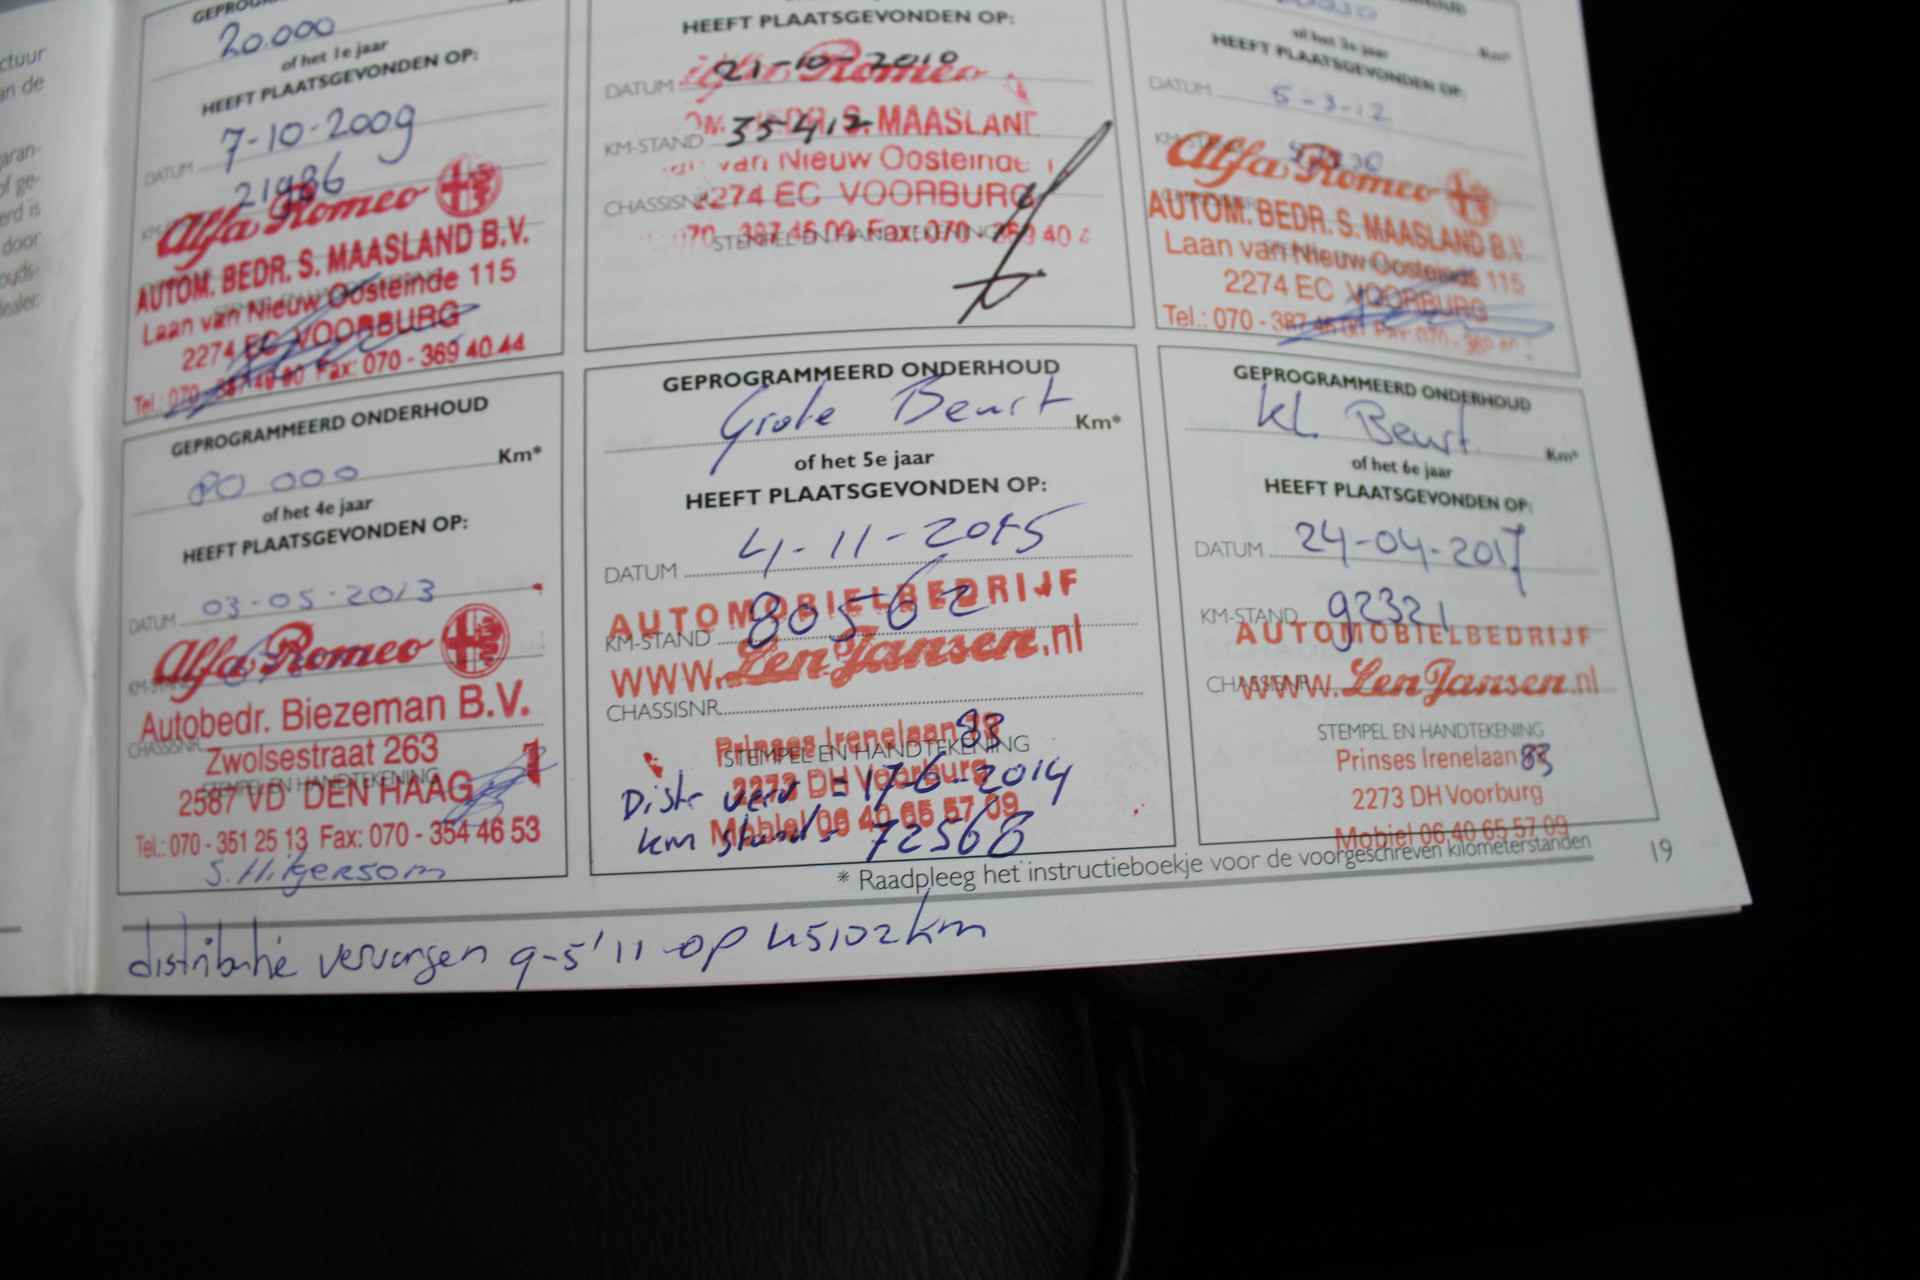 ctuur
an de
aran-
of ge-
erd is
door
ouds-
dealer.
20.000
of het 1e jaar
HEEFT PLAATSGEVONDEN OP:
DATUM 7-10-2009
21986
Alfa Romeo
AUTOM. BEDR. S. MAASLAND B.V.
Laan van Nieuw Oosteinde 115
2274 EC VOORBURG
Tel.: 070 - 387 46 00 Fax: 070 - 369 40 44
HEEFT PLAATSGEVONDEN OP:
Alfa Romeo
DATUM 21-10-2010
S. MAASLAND
KM-STAND 35412
van Nieuw Oosteinde
CHASSISNR
2274 EC VOORBURG
STEMPEL EN HANDTEKENING
070 387 46 00 Fax: 070 - 369 40 4
of het 3e jaar
Km*
HEEFT PLAATSGEVONDEN OP:
DATUM 5-3-12
KM-STAND
Alfa Romeo
AUTOM. BEDR. S. MAASLAND B.V.
Laan van Nieuw Oosteinde 115
2274 EC VOORBURG
Tel.: 070 - 387 46 00 Fax: 070 - 369 40
GEPROGRAMMEERD ONDERHOUD
80 000 Km*
of het 4e jaar
HEEFT PLAATSGEVONDEN OP:
DATUM 03-05-2013
KM-STAND
Alfa Romeo
Autobedr. Biezeman B.V.
CHASSISNR.
Zwolsestraat 263
STEMPEL EN HANDTEKENING
2587 VD DEN HAAG
1
Tel.: 070 - 351 25 13 Fax: 070 - 354 46 53
GEPROGRAMMEERD ONDERHOUD
Grote Beurt Km*
of het 5e jaar
HEEFT PLAATSGEVONDEN OP:
DATUM 4-11-2015
AUTOMOBIELBEDRIJF
KM-STAND 80562
www.Len Jansen.nl
CHASSISNR
Prinses Irenelaan 83
STEMPEL EN HANDTEKENING
2273 DH Voorburg
Distr verv = 17-6-2014
Mobiel 06 40 65 57 09
km stand = 72568
GEPROGRAMMEERD ONDERHOUD
kl. Beurt Km*
of het 6e jaar
HEEFT PLAATSGEVONDEN OP:
DATUM 24-04-2017
KM-STAND 92321
AUTOMOBIELBEDRIJF
CHASSISNR
www.Len Jansen.nl
STEMPEL EN HANDTEKENING
Prinses Irenelaan 83
2273 DH Voorburg
Mobiel 06 40 65 57 09
* Raadpleeg het instructieboekje voor de voorgeschreven kilometerstanden
19
distributie vervangen 9-5'11 op 45102km